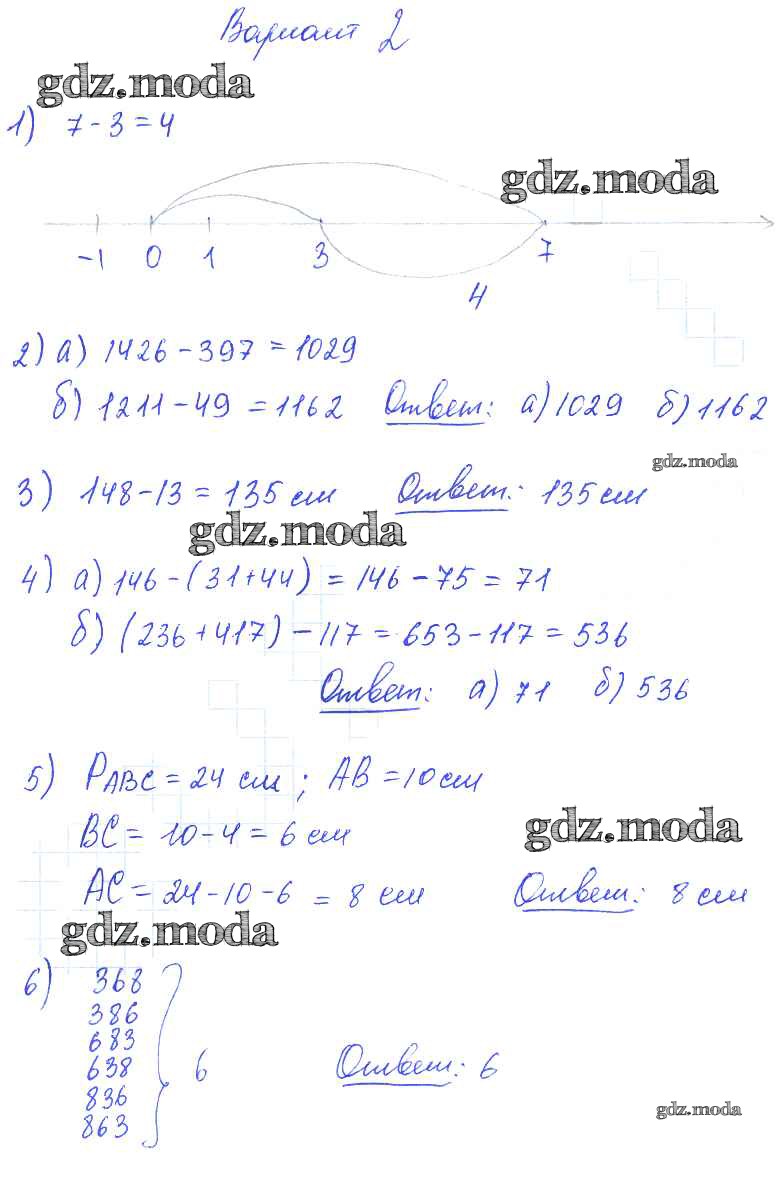 Вариант 2
gdz.moda
1) 7 - 3 = 4
gdz.moda
-1 0 1 3 7
4
2) а) 1426 - 397 = 1029
б) 1211 - 49 = 1162 Ответ: а) 1029 б) 1162
gdz.moda
3) 148 - 13 = 135 см Ответ: 135 см
gdz.moda
4) а) 146 - (31 + 44) = 146 - 75 = 71
б) (236 + 417) - 117 = 653 - 117 = 536
Ответ: а) 71 б) 536
5) PABC = 24 см; AB = 10 см
BC = 10 - 4 = 6 см
gdz.moda
AC = 24 - 10 - 6 = 8 см Ответ: 8 см
gdz.moda
6) 368
386
683
638 6 Ответ: 6
836
863
gdz.moda